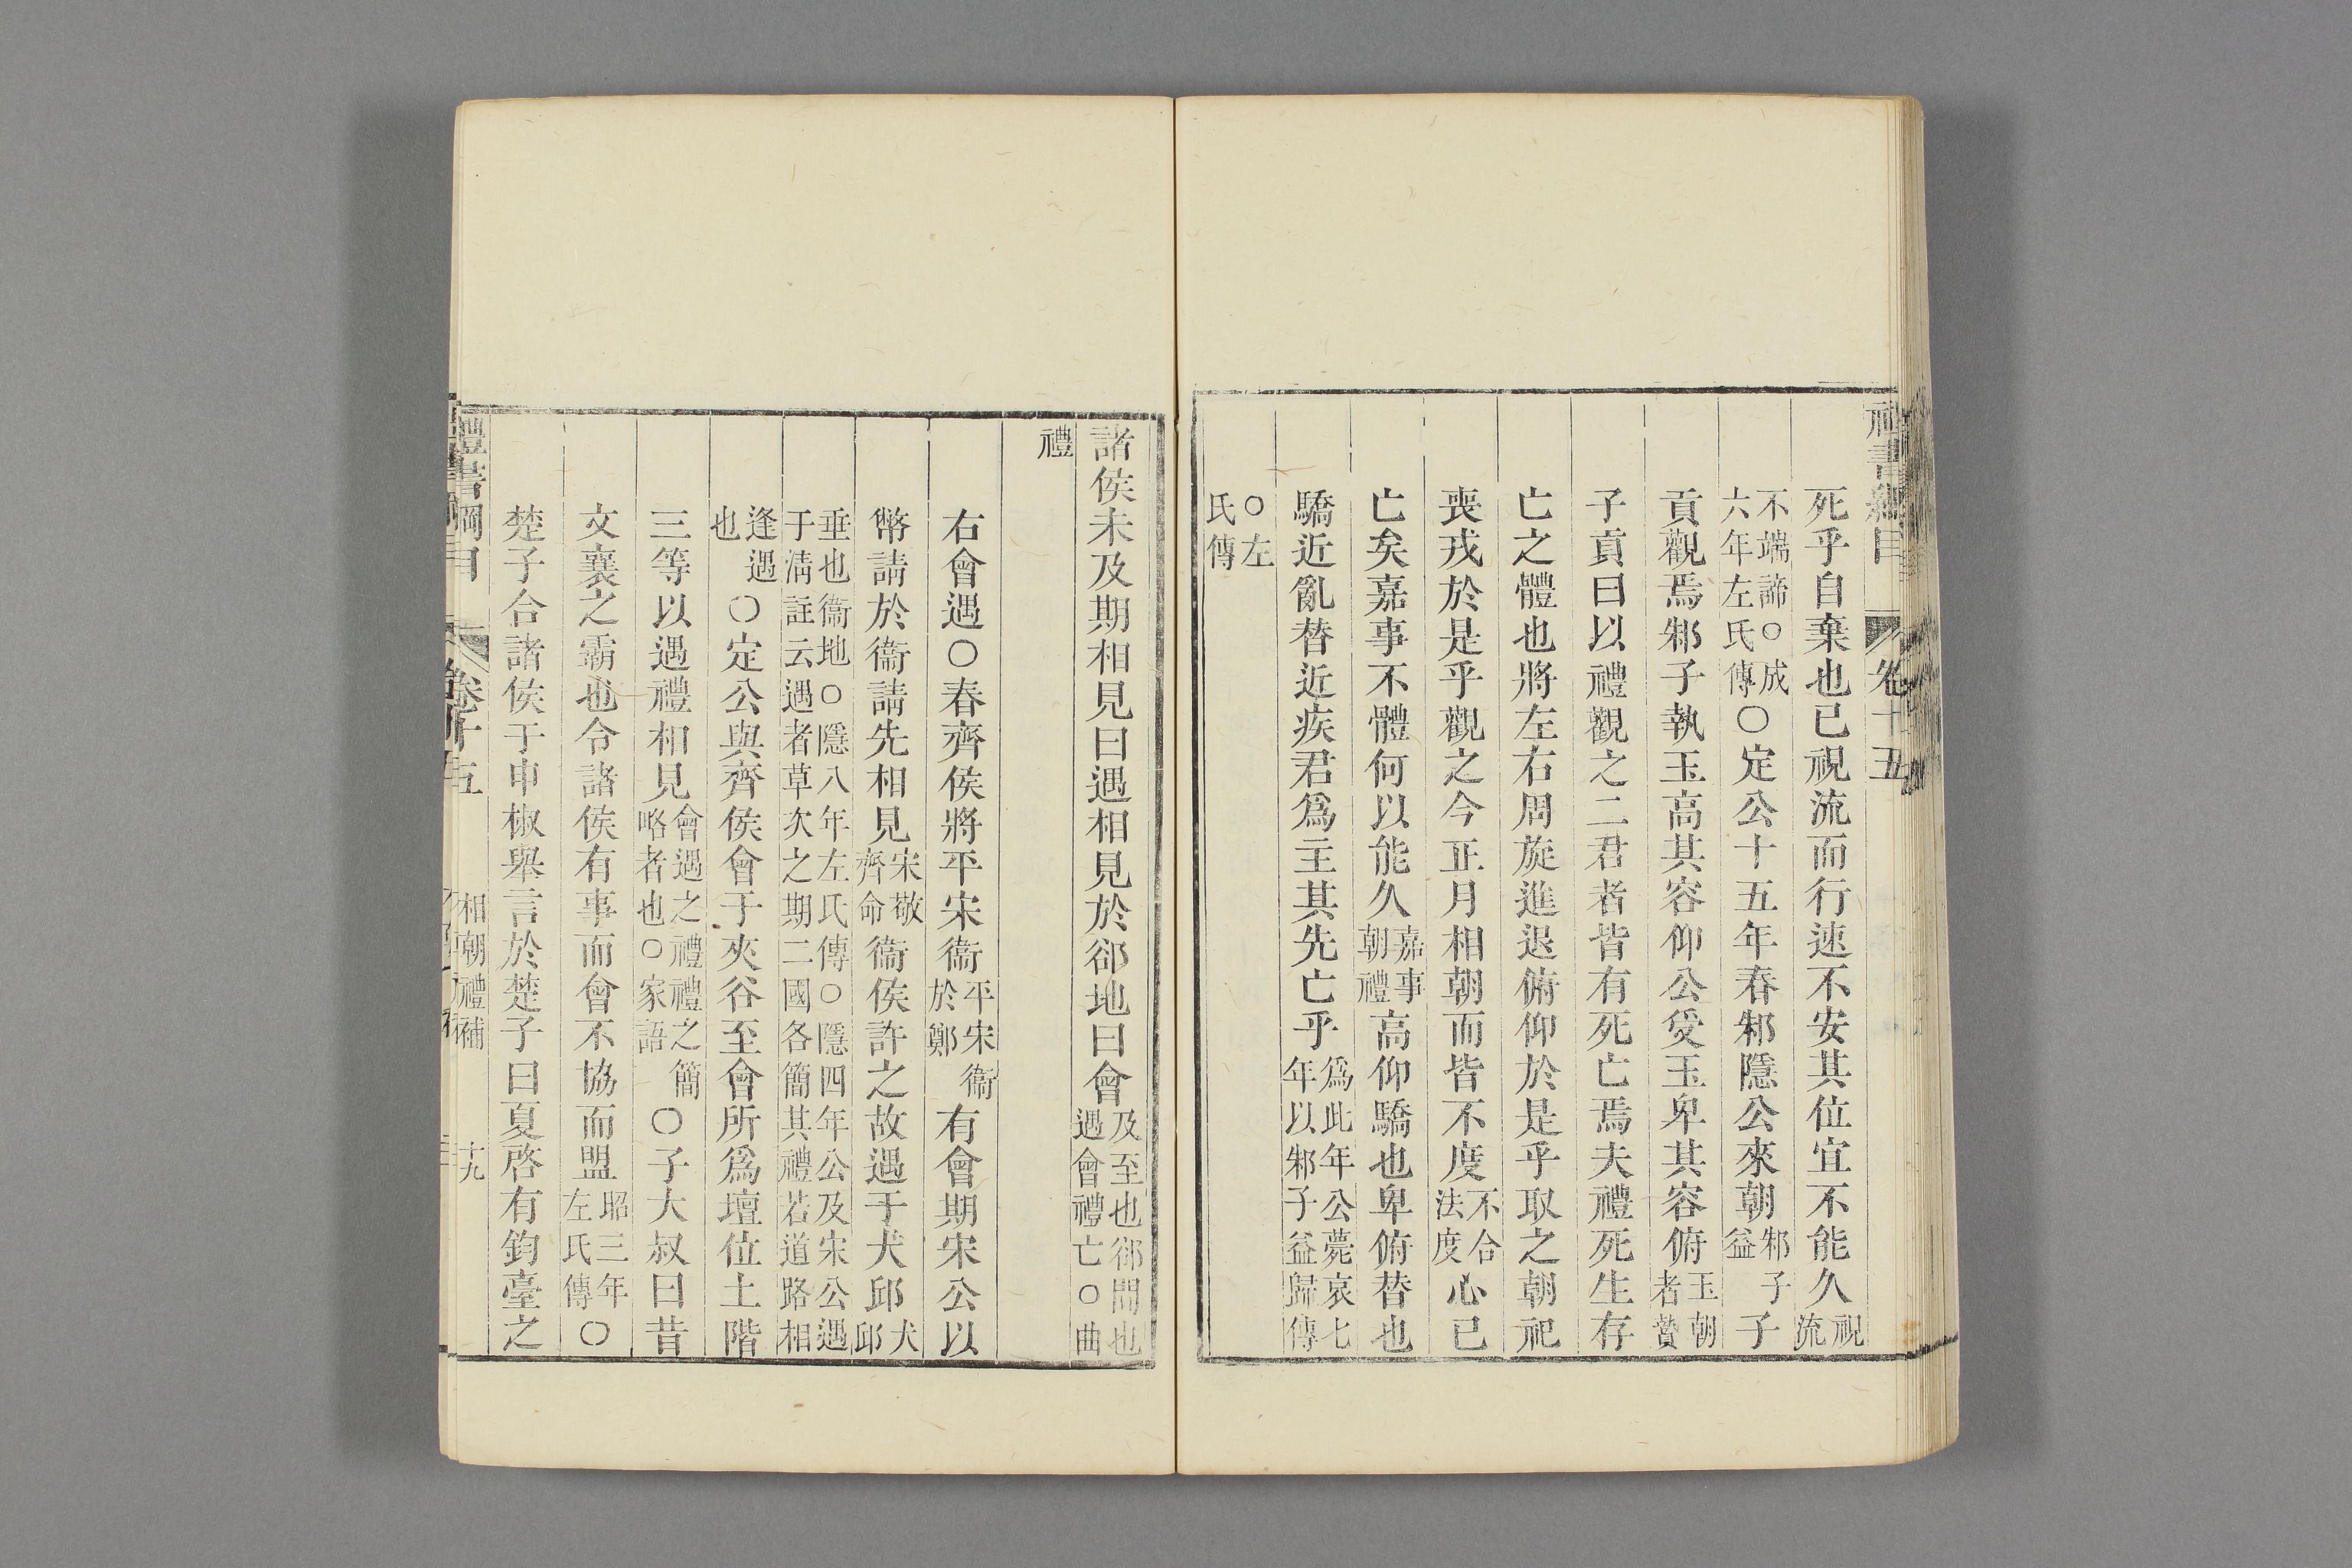 禮書綱目 卷十五
死乎自棄也已視流而行速不安其位宜不能久視流
不端諦○成六年左氏傳○定公十五年春邾隱公來朝邾子益子
貢觀焉邾子執玉高其容仰公受玉卑其容俯玉朝者贄
子貢曰以禮觀之二君者皆有死亡焉夫禮死生存
亡之體也將左右周旋進退俯仰於是乎取之朝祀
喪戎於是乎觀之今正月相朝而皆不度不合法度心已
亡矣嘉事不體何以能久嘉事朝禮高仰驕也卑俯替也
驕近亂替近疾君為主其先亡乎為此年公薨哀七年以邾子益歸傳
○左氏傳
諸侯未及期相見曰遇相見於郤地曰會及至也郤間也遇會禮亡○曲
禮
右會遇○春齊侯將平宋衞平宋衞於鄭有會期宋公以
幣請於衞請先相見宋敬齊命衞侯許之故遇于犬邱犬邱
垂也衞地○隱八年左氏傳○隱四年公及宋公遇于淸註云遇者草次之期二國各簡其禮若道路相
逢遇也○定公與齊侯會于夾谷至會所為壇位土階
三等以遇禮相見會遇之禮禮之簡略者也○家語○子大叔曰昔
文襄之霸也令諸侯有事而會不協而盟昭三年左氏傳○
楚子合諸侯于申椒舉言於楚子曰夏啓有鈞臺之
禮書綱目 卷十五 相朝禮補 十九